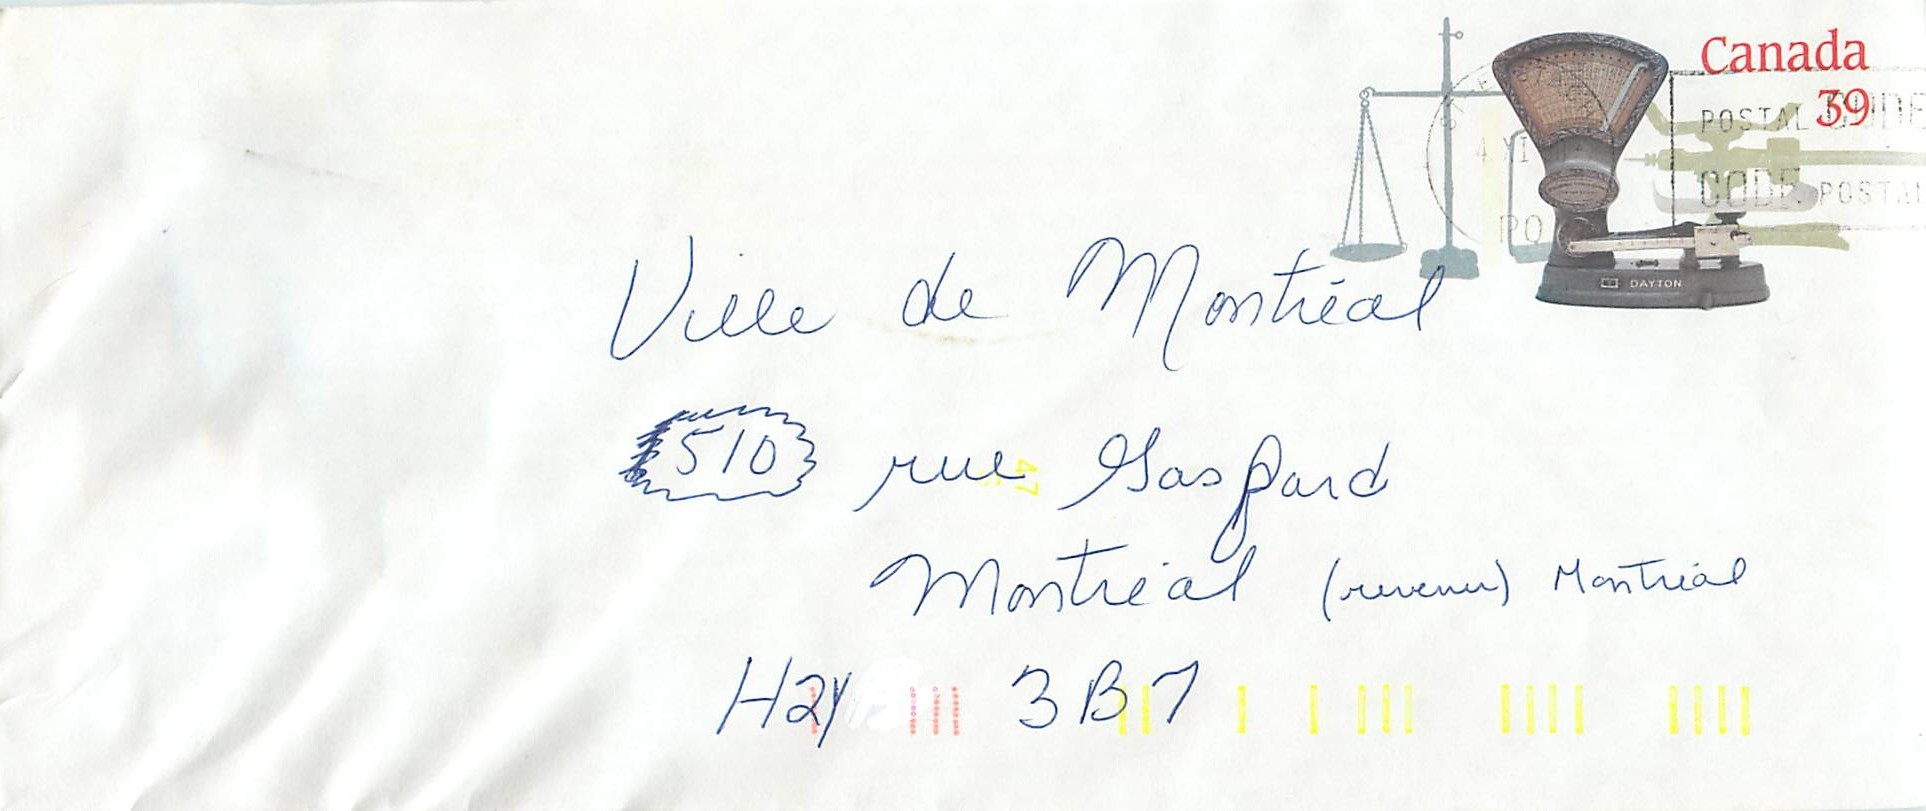 Canada
39
POSTAL CODE
CODE POSTAL
DAYTON
Ville de Montréal
510 rue Gaspard
47
Montréal (revenu) Montréal
H2Y 3B7